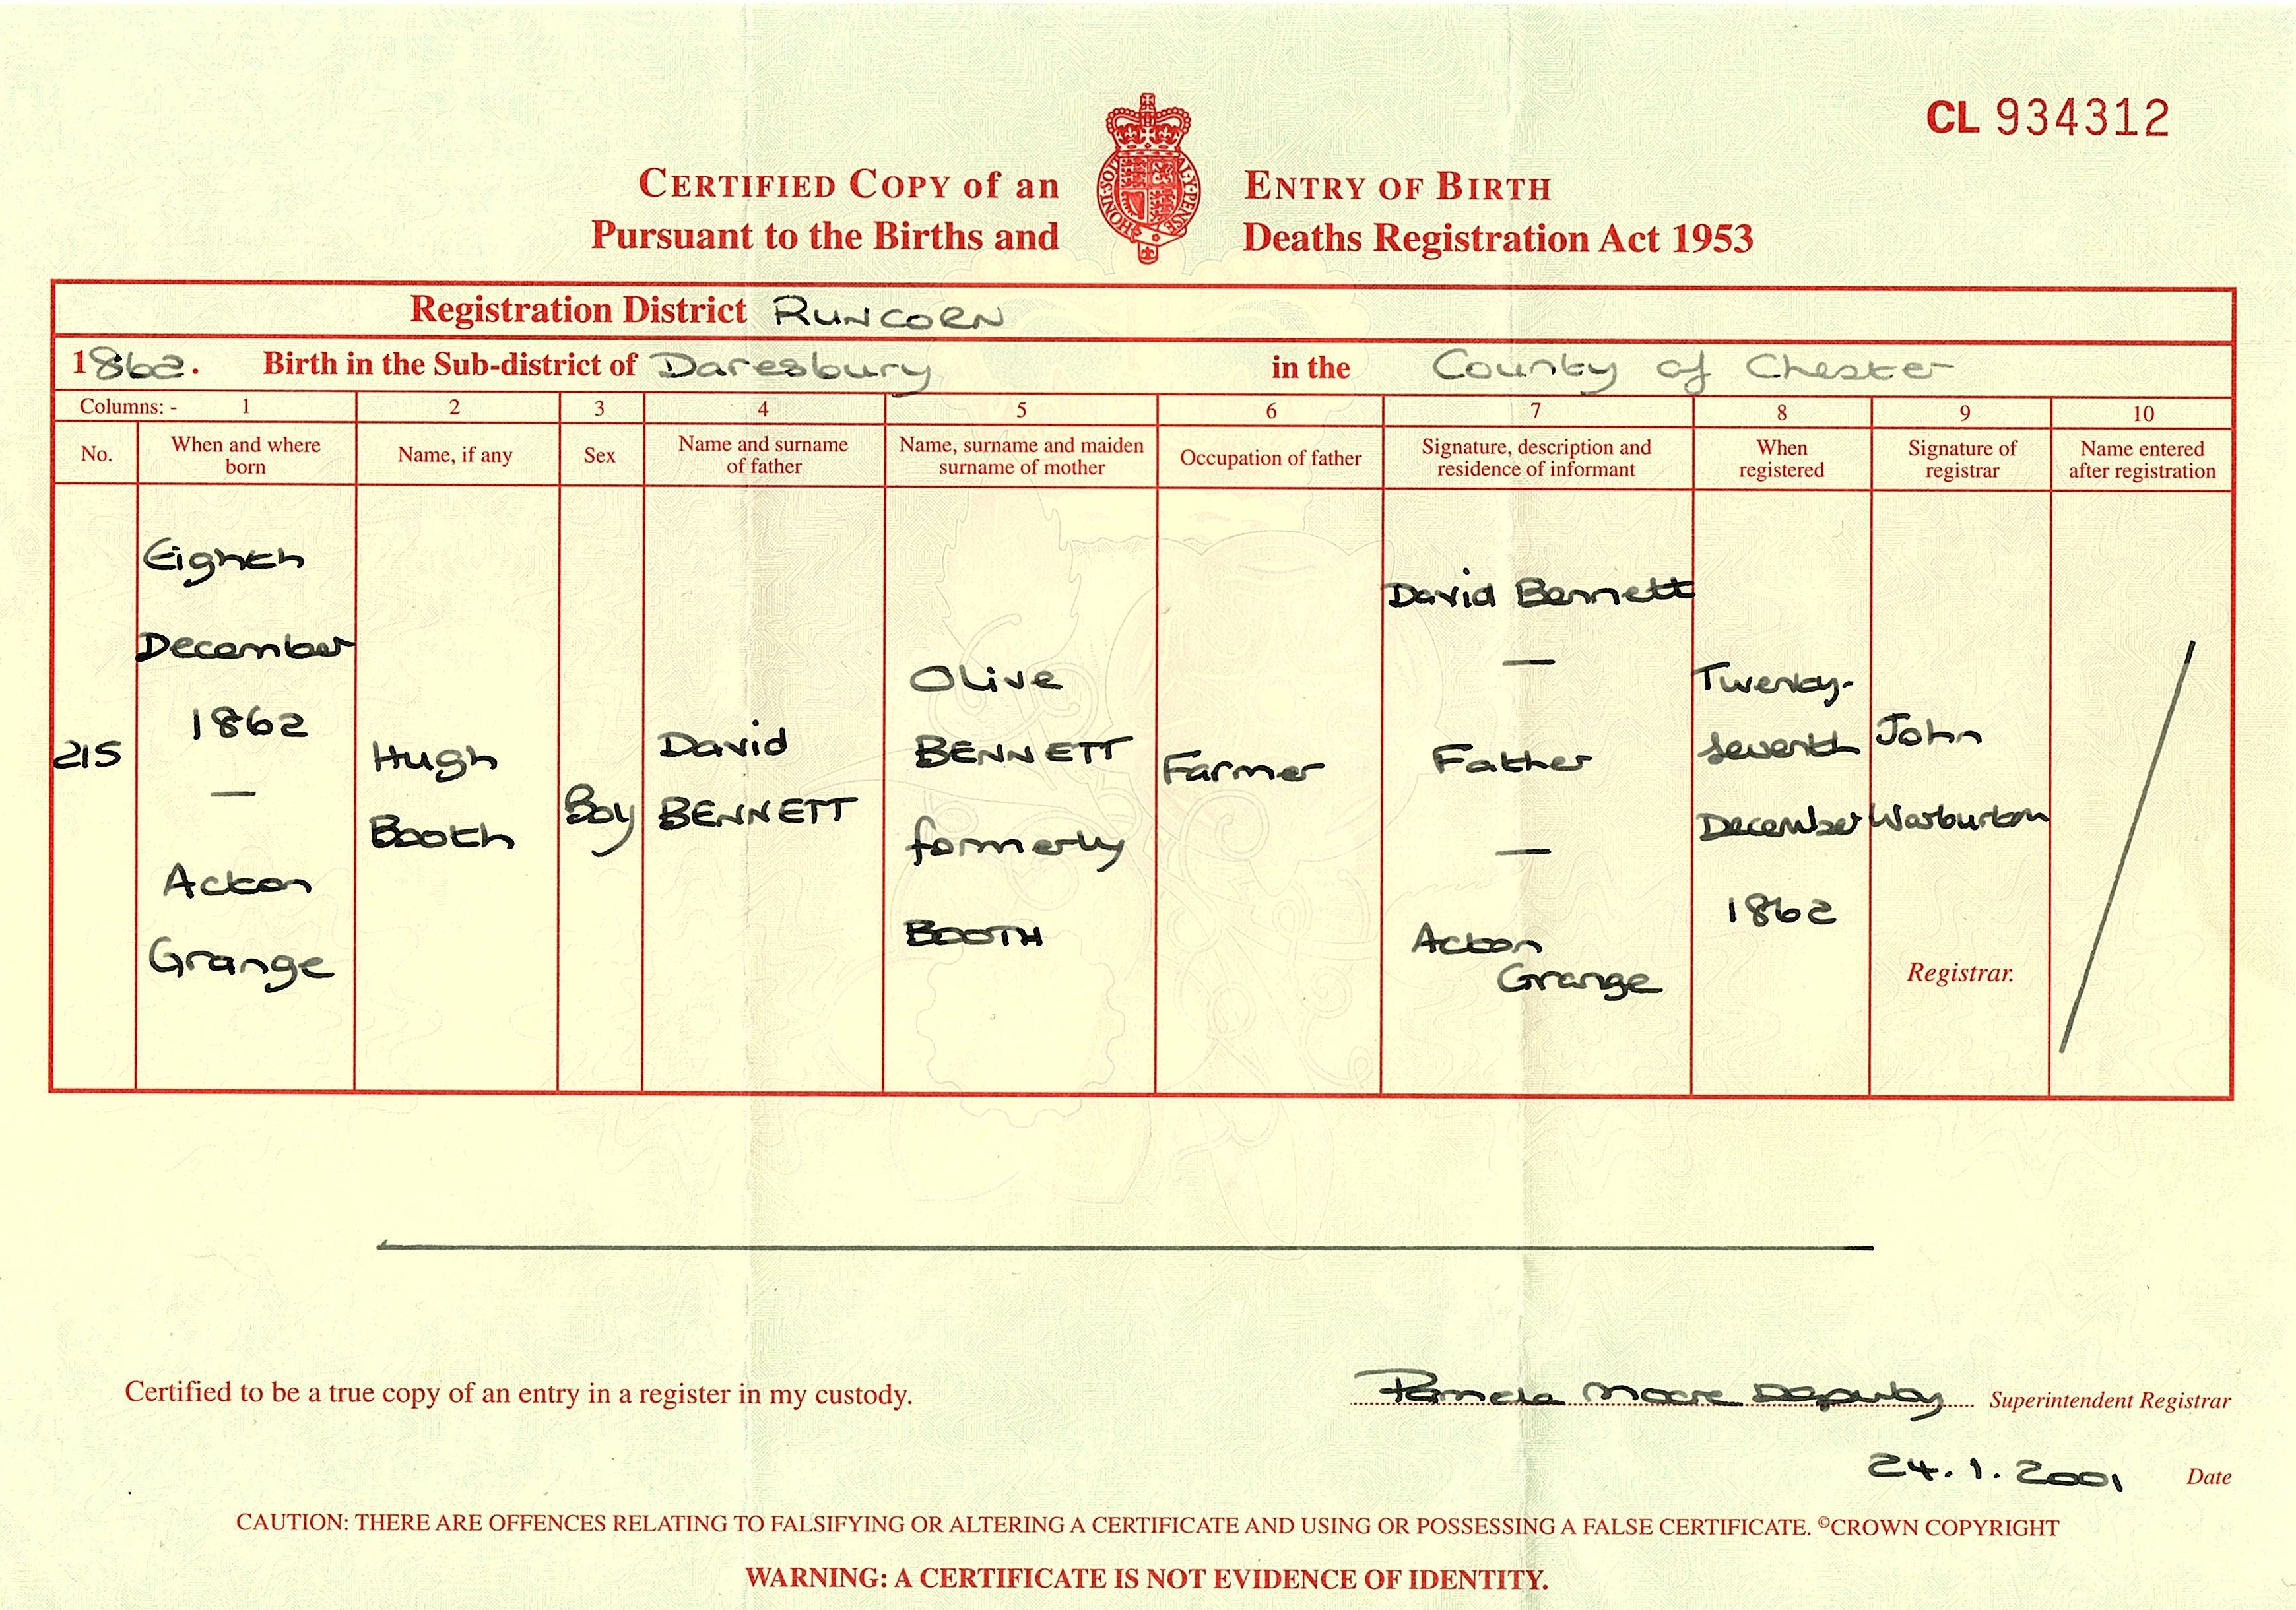 CL 934312
CERTIFIED COPY of an ENTRY OF BIRTH
HONI·SOIT MAL·Y·PENSE
Pursuant to the Births and Deaths Registration Act 1953
Registration District RUNCORN
1862. Birth in the Sub-district of Daresbury in the County of Chester
Columns: - 1 2 3 4 5 6 7 8 9 10
No.
When and where
born
Name, if any
Sex
Name and surname
of father
Name, surname and maiden
surname of mother
Occupation of father
Signature, description and
residence of informant
When
registered
Signature of
registrar
Name entered
after registration
215
Eighth
December
1862
—
Acton
Grange
Hugh
Booth
Boy
David
BENNETT
Olive
BENNETT
formerly
BOOTH
Farmer
David Bennett
—
Father
—
Acton
Grange
Twenty-
seventh
December
1862
John
Warburton
Registrar.
Certified to be a true copy of an entry in a register in my custody.
Pamela Moore Deputy Superintendent Registrar
24.1.2001 Date
CAUTION: THERE ARE OFFENCES RELATING TO FALSIFYING OR ALTERING A CERTIFICATE AND USING OR POSSESSING A FALSE CERTIFICATE. ©CROWN COPYRIGHT
WARNING: A CERTIFICATE IS NOT EVIDENCE OF IDENTITY.